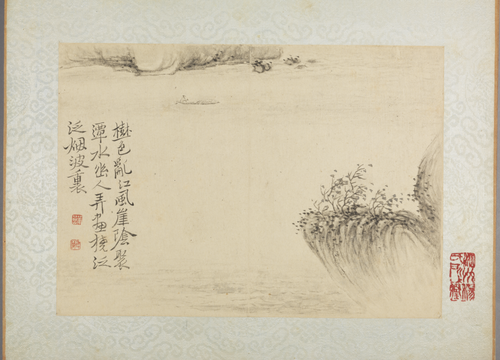 樹色亂江風崖陰聚
潭水幽人弄畫橈泛
泛烟波裏